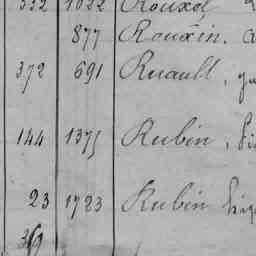 332 1022 Rouxel
877 Rouxin.
372 691 Ruault,
144 1375 Rubin,
23 1723 Rubin
369